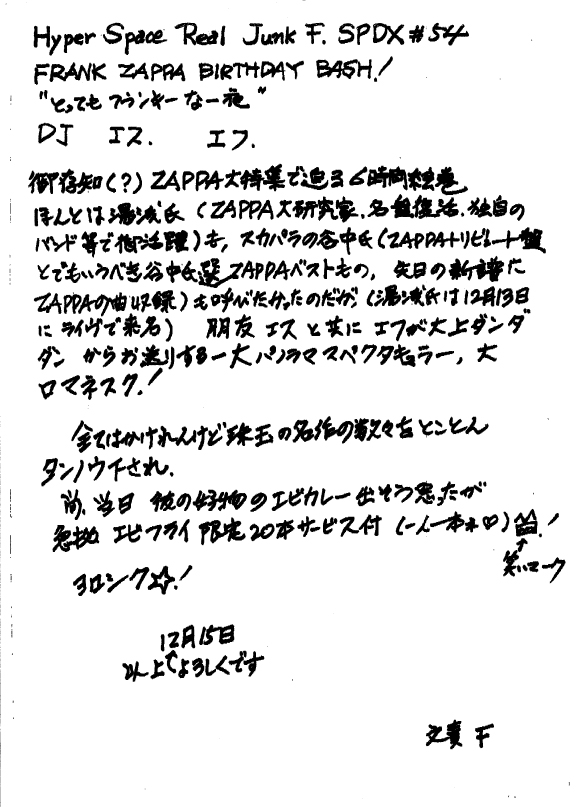 Hyper Space Real Junk F. SPDX #54
FRANK ZAPPA BIRTHDAY BASH!
"とってもファンキーな一夜"
DJ エス. エフ.
御存知(?) ZAPPA大特集で迫る6時間絵巻
ほんとは湯浅氏 (ZAPPA大研究家、名盤復活、独自の
バンド等で御活躍) も, スカパラの谷中氏 (ZAPPAトリビュート盤
とでもいうべき谷中氏選ZAPPAベストもの, 先日の新譜に
ZAPPAの曲収録) も呼びたかったのだが, (湯浅氏は12月13日
にライヴで来名) 朋友 エス と共に エフが大上ダンダ
ダン からお送りする一大パノラマスペクタキュラー, 大
ロマネスク!
全てはかけれんけど珠玉の名作の数々をとことん
タンノウ下され.
尚, 当日 彼の好物のエビカレー出そう思ったが
急拠 エビフライ限定20本サービス付 (一人一本ネ♡)!
↑
笑いマーク
ヨロシク☆!
12月15日
以上↑よろしくです
文責 F